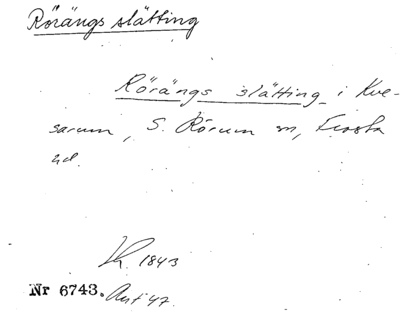 Rörängs slätting
Rörängs slätting i Kve-
sarum, S. Rörum sn, Frosta
hd.
1843
Nr 6743. Avs 47.